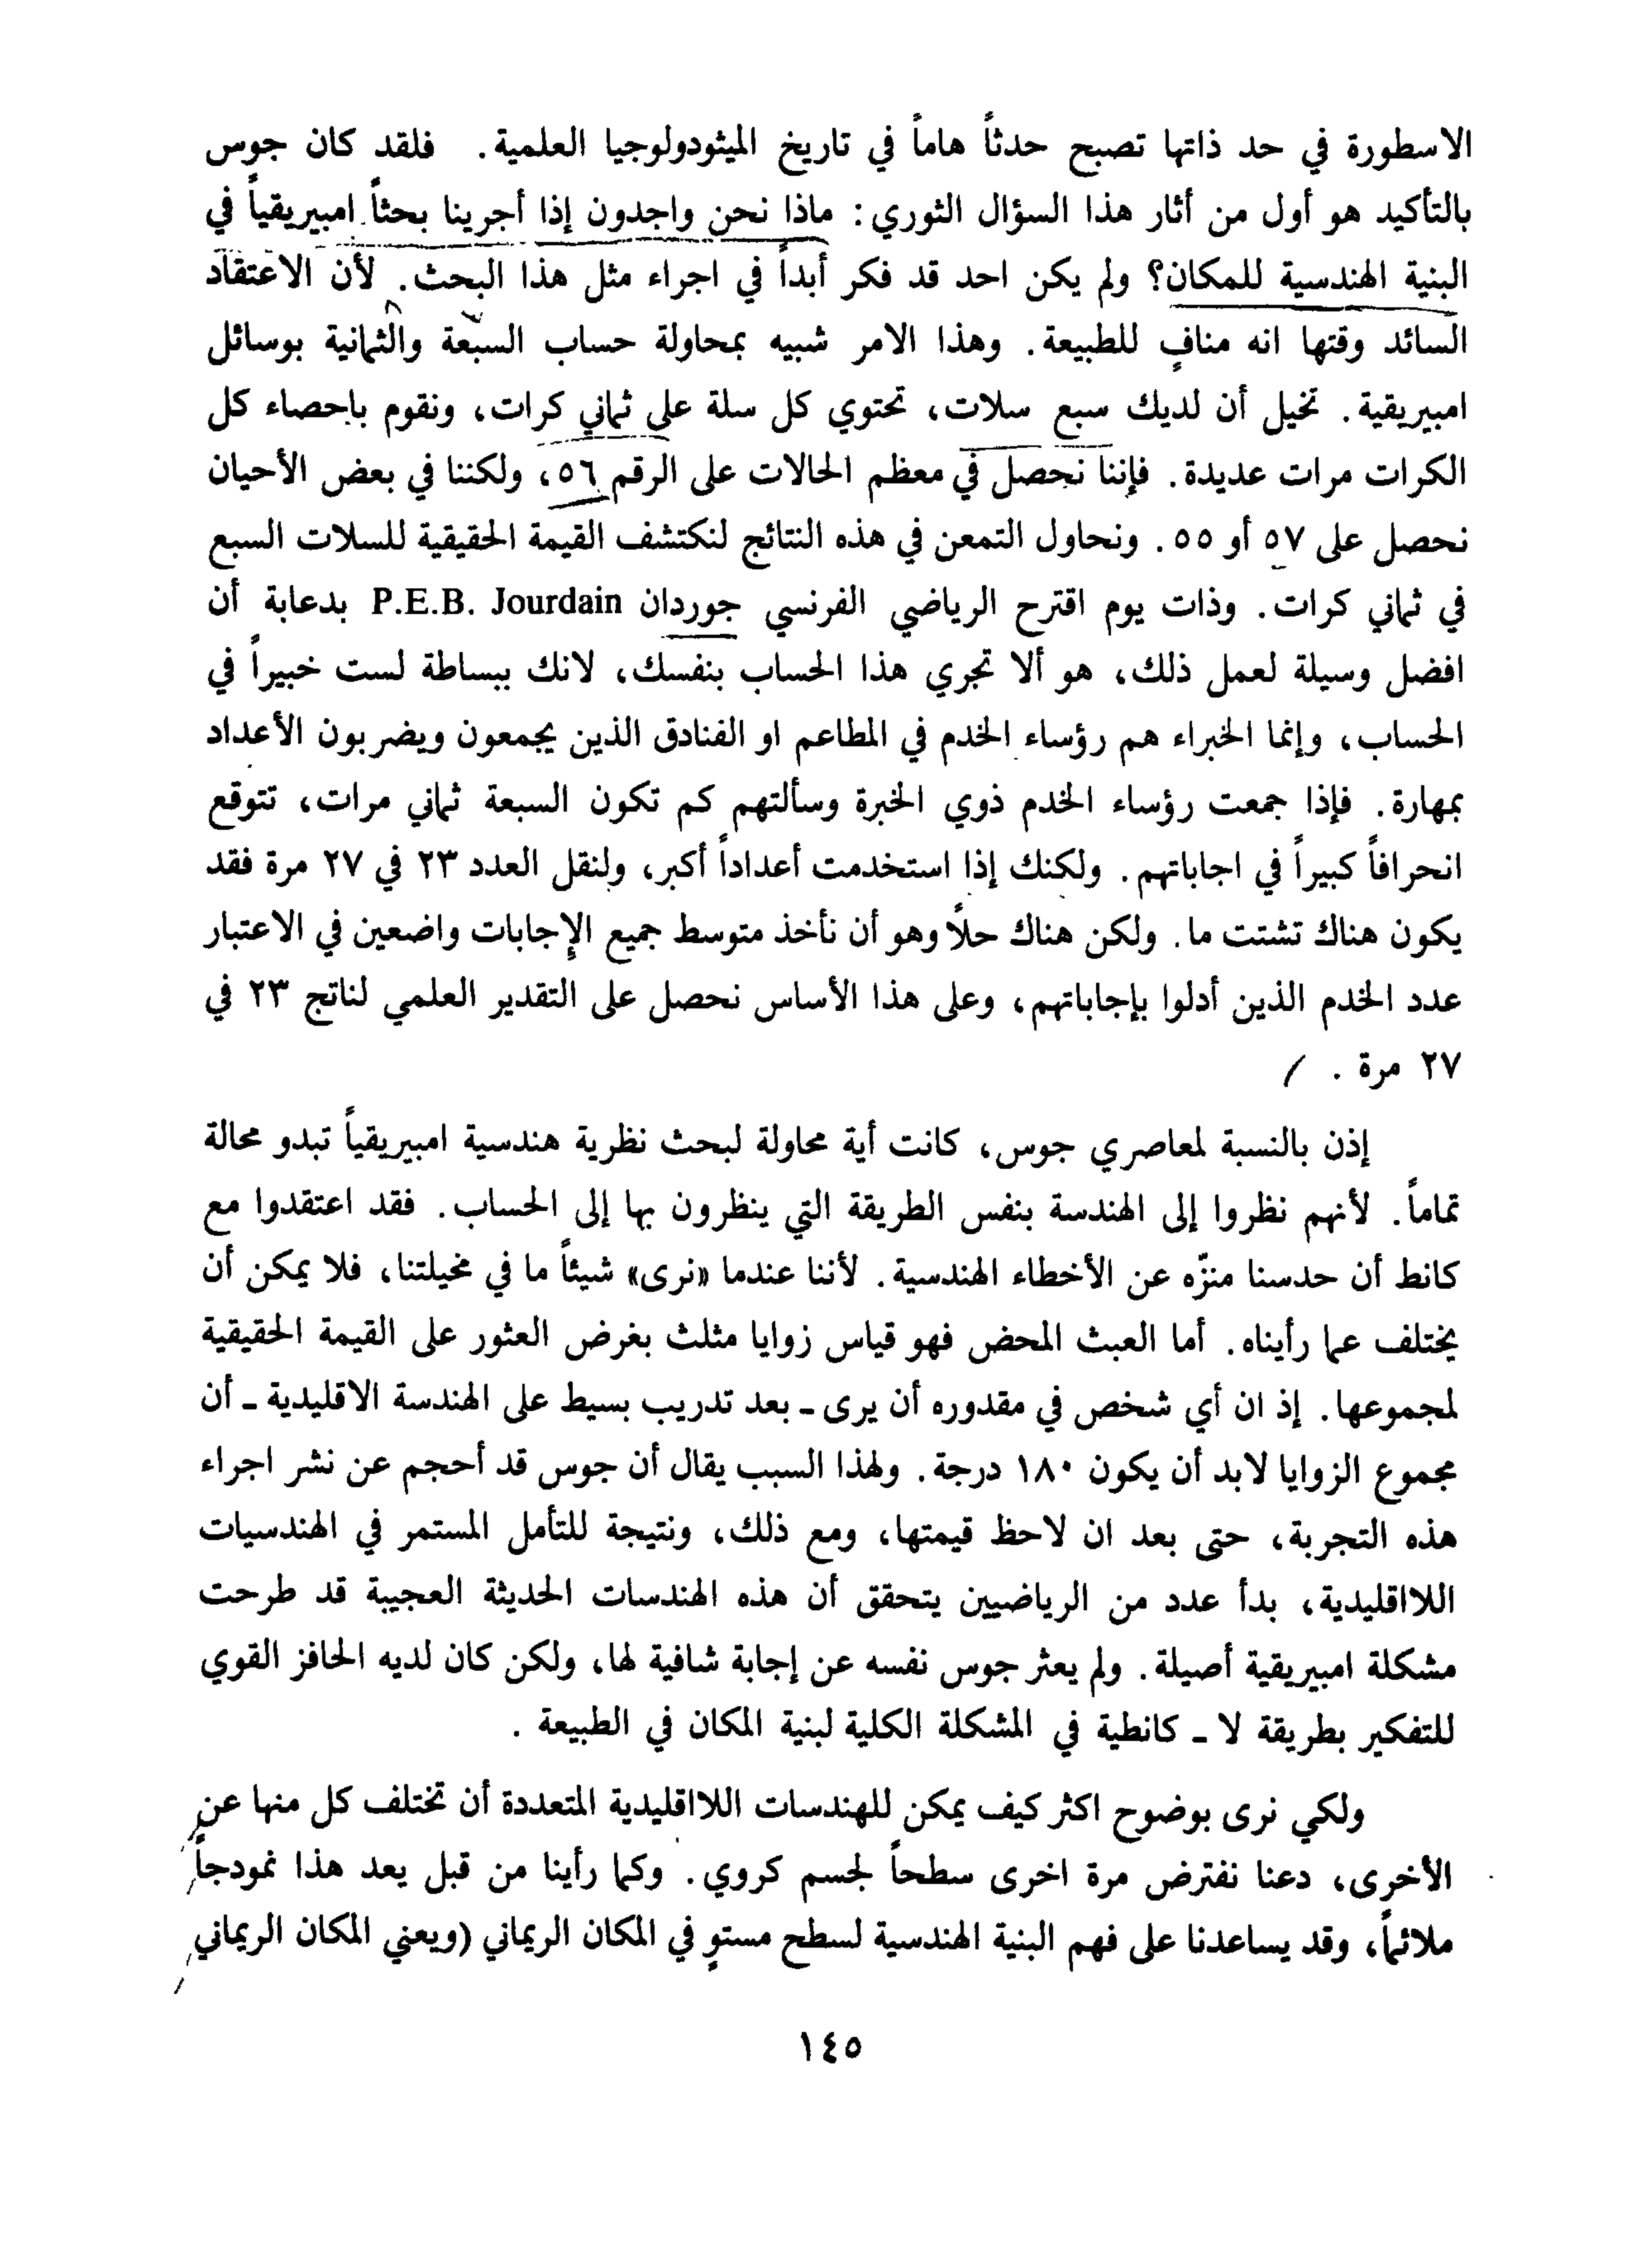 الاسطورة في حد ذاتها تصبح حدثاً هاماً في تاريخ الميثودولوجيا العلمية. فلقد كان جوس
بالتأكيد هو أول من أثار هذا السؤال الثوري: ماذا نحن واجدون إذا أجرينا بحثاً امبيريقياً في
البنية الهندسية للمكان؟ ولم يكن احد قد فكر أبداً في اجراء مثل هذا البحث. لأن الاعتقاد
السائد وقتها انه منافٍ للطبيعة. وهذا الامر شبيه بمحاولة حساب السبعة والثمانية بوسائل
امبيريقية. تخيل أن لديك سبع سلات، تحتوي كل سلة على ثماني كرات، ونقوم بإحصاء كل
الكرات مرات عديدة. فإننا نحصل في معظم الحالات على الرقم ٥٦، ولكننا في بعض الأحيان
نحصل على ٥٧ أو ٥٥. ونحاول التمعن في هذه النتائج لنكتشف القيمة الحقيقية للسلات السبع
في ثماني كرات. وذات يوم اقترح الرياضي الفرنسي جوردان P.E.B. Jourdain بدعابة أن
افضل وسيلة لعمل ذلك، هو ألا تجري هذا الحساب بنفسك، لانك ببساطة لست خبيراً في
الحساب، وإنما الخبراء هم رؤساء الخدم في المطاعم او الفنادق الذين يجمعون ويضربون الأعداد
بمهارة. فإذا جمعت رؤساء الخدم ذوي الخبرة وسألتهم كم تكون السبعة ثماني مرات، تتوقع
انحرافاً كبيراً في اجاباتهم. ولكنك إذا استخدمت أعداداً أكبر، ولنقل العدد ٢٣ في ٢٧ مرة فقد
يكون هناك تشتت ما. ولكن هناك حلاً وهو أن نأخذ متوسط جميع الإجابات واضعين في الاعتبار
عدد الخدم الذين أدلوا بإجاباتهم، وعلى هذا الأساس نحصل على التقدير العلمي لناتج ٢٣ في
٢٧ مرة .
إذن بالنسبة لمعاصري جوس، كانت أية محاولة لبحث نظرية هندسية امبيريقياً تبدو محالة
تماماً. لأنهم نظروا إلى الهندسة بنفس الطريقة التي ينظرون بها إلى الحساب. فقد اعتقدوا مع
كانط أن حدسنا منزّه عن الأخطاء الهندسية. لأننا عندما «نرى» شيئاً ما في مخيلتنا، فلا يمكن أن
يختلف عما رأيناه. أما العبث المحض فهو قياس زوايا مثلث بغرض العثور على القيمة الحقيقية
لمجموعها. إذ ان أي شخص في مقدوره أن يرى ـ بعد تدريب بسيط على الهندسة الاقليدية ـ أن
مجموع الزوايا لابد أن يكون ١٨٠ درجة. ولهذا السبب يقال أن جوس قد أحجم عن نشر اجراء
هذه التجربة، حتى بعد ان لاحظ قيمتها، ومع ذلك، ونتيجة للتأمل المستمر في الهندسيات
اللااقليدية، بدأ عدد من الرياضيين يتحقق أن هذه الهندسات الحديثة العجيبة قد طرحت
مشكلة امبيريقية أصيلة. ولم يعثر جوس نفسه عن إجابة شافية لها، ولكن كان لديه الحافز القوي
للتفكير بطريقة لا ـ كانطية في المشكلة الكلية لبنية المكان في الطبيعة .
ولكي نرى بوضوح اكثر كيف يمكن للهندسات اللااقليدية المتعددة أن تختلف كل منها عن
الأخرى، دعنا نفترض مرة اخرى سطحاً لجسم كروي. وكما رأينا من قبل يعد هذا نمودجاً
ملائماً، وقد يساعدنا على فهم البنية الهندسية لسطح مستوٍ في المكان الريماني (ويعني المكان الريماني
١٤٥